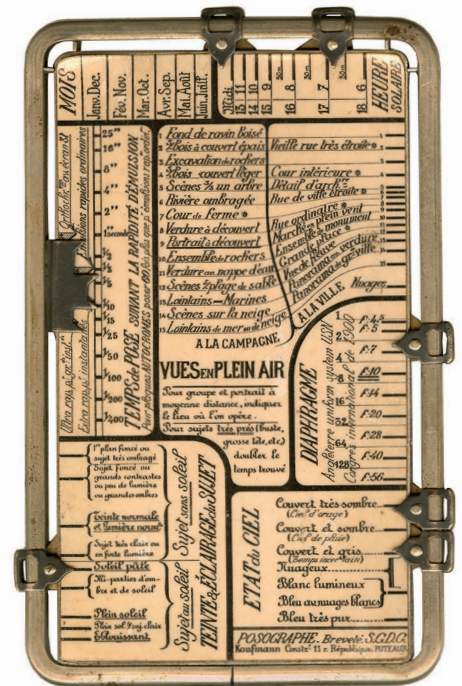 MOIS
Janv. Dec.
Fév. Nov.
Mar. Oct.
Avr. Sep.
Mai. Août
Juin. Juil.
Midi
13 11
14 10
15 9
16 8
17 7
18 6
30m
30m
30m
HEURE
SOLAIRE
TEMPS de POSE SUIVANT LA RAPIDITÉ D'ÉMULSION
25"
16"
8"
4"
2"
1 seconde
1/2
1/5
1/10
1/15
1/25
1/50
1/100
1/200
1/400
1 Fond de ravin boisé
2 S/bois à couvert épais
3 Excavation de rochers
4 S/bois couvert léger
5 Scènes s/s un arbre
6 Rivière ombragée
7 Cour de Ferme *
8 Verdure à découvert
9 Portrait à découvert
10 Ensemble de rochers
11 Verdure en nappe d'eau
12 Scènes s/plage de sable
13 Lointains – Marines
14 Scènes sur la neige
15 Lointains de mer ou de neige
A LA CAMPAGNE
Vieille rue très étroite *
Cour intérieure *
Détail d'arch.re
Rue de ville étroite *
Rue ordinaire *
Marché en plein vent
Ensemble de monument
Grande place *
Vue de fleuve
Panorama de verdure
Panorama de gde ville
Nuages
A LA VILLE
VUES EN PLEIN AIR
Pour groupe et portrait à
moyenne distance, indiquez
le lieu où l'on opère.
Pour sujets très près (buste,
grosse tête, etc)
doubler le
temps trouvé
DIAPHRAGME
Angleterre uniform system USN
Congrès international de 1900
4
8
16
32
64
128
F:4,5
F:5
F:7
F:10
F:14
F:20
F:28
F:40
F:56
1er plan foncé ou
sujet très ombragé
Sujet foncé ou
grands contrastes
ou peu de lumière
ou grandes ombres
Teinte normale
et lumière norm.le
Sujet très clair ou
en forte lumière
Soleil pâle
Mi-parties d'om-
bre et de soleil
Plein soleil
Plein sol. suj. clair
Eblouissant
Sujet sans soleil
Sujet au soleil
TEINTE & ÉCLAIRAGE du SUJET
ETAT du CIEL
Couvert très sombre
(Ciel d'orage)
Couvert et sombre
(Ciel de pluie)
Couvert et gris
(Temps incertain)
Nuageux
Blanc lumineux
Bleu au nuages blancs
Bleu très pur
POSOGRAPHE. Breveté S.G.D.G.
Kaufmann Constr. 11 r. République. PUTEAUX